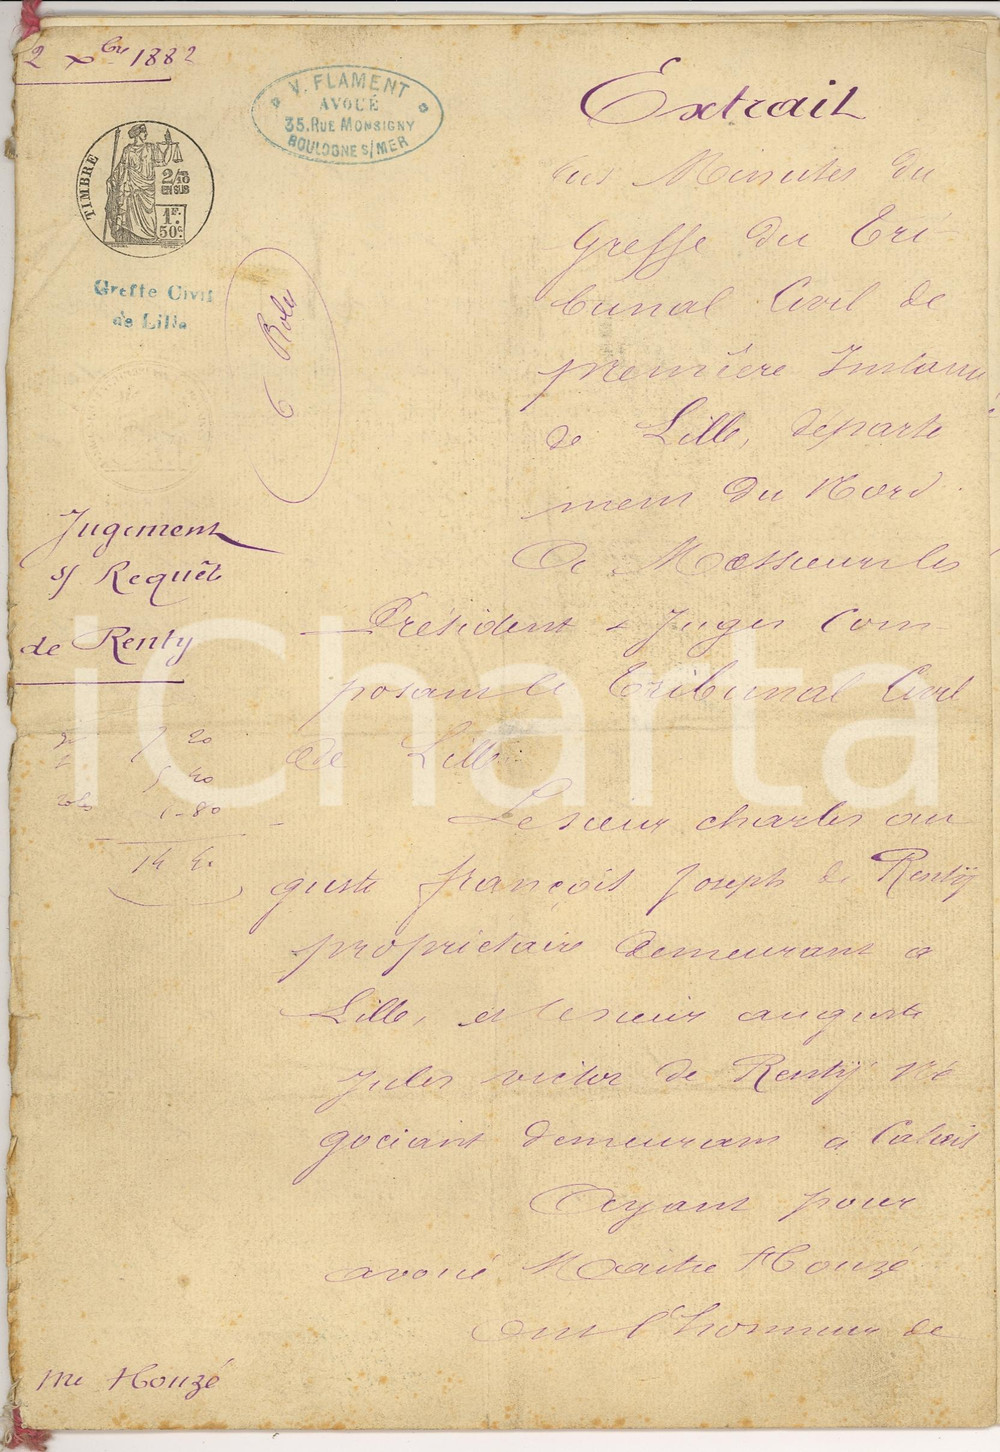 2 Xbre 1882
V. FLAMENT
AVOUÉ
35, RUE MONSIGNY
BOULOGNE S/MER
TIMBRE
2/10
EN SUS
1F.
50c.
Greffe Civil
de Lille
6 Roles
Jugement
s/ Requête
de Renty
7 20
5 40
roles 1-80
14 4.
Me Houzé
Extrait
des Minutes du
Greffe du Tri
bunal Civil de
première Instance
de Lille, départe
ment du Nord.
A Messieurs les
Président & Juges Com
posant le Tribunal Civil
de Lille
Le sieur charles au
guste françois Joseph de Renty
propriétaire demeurant a
Lille, et le sieur auguste
Jules victor de Renty Né
gociant demeurant a Calais
Ayant pour
avoué Maître Houzé
Ont l'honneur de
iCharta